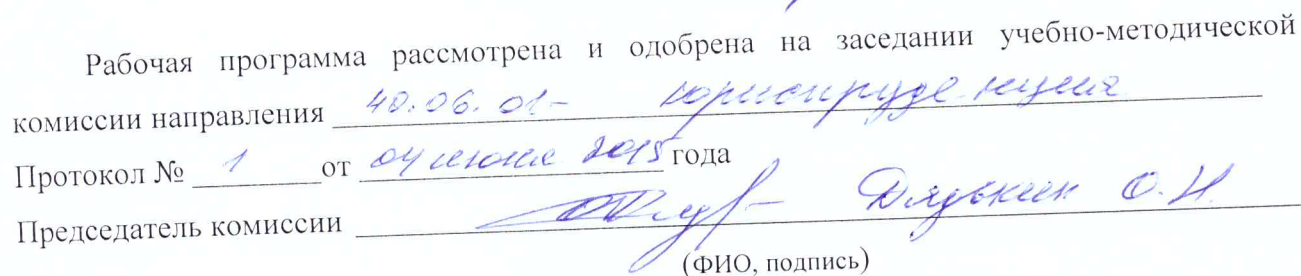 Рабочая программа рассмотрена и одобрена на заседании учебно-методической
комиссии направления 40.06.01 - юриспруденция
Протокол № 1 от 04 июня 2015 года
Председатель комиссии Дядькин О.Н.
(ФИО, подпись)